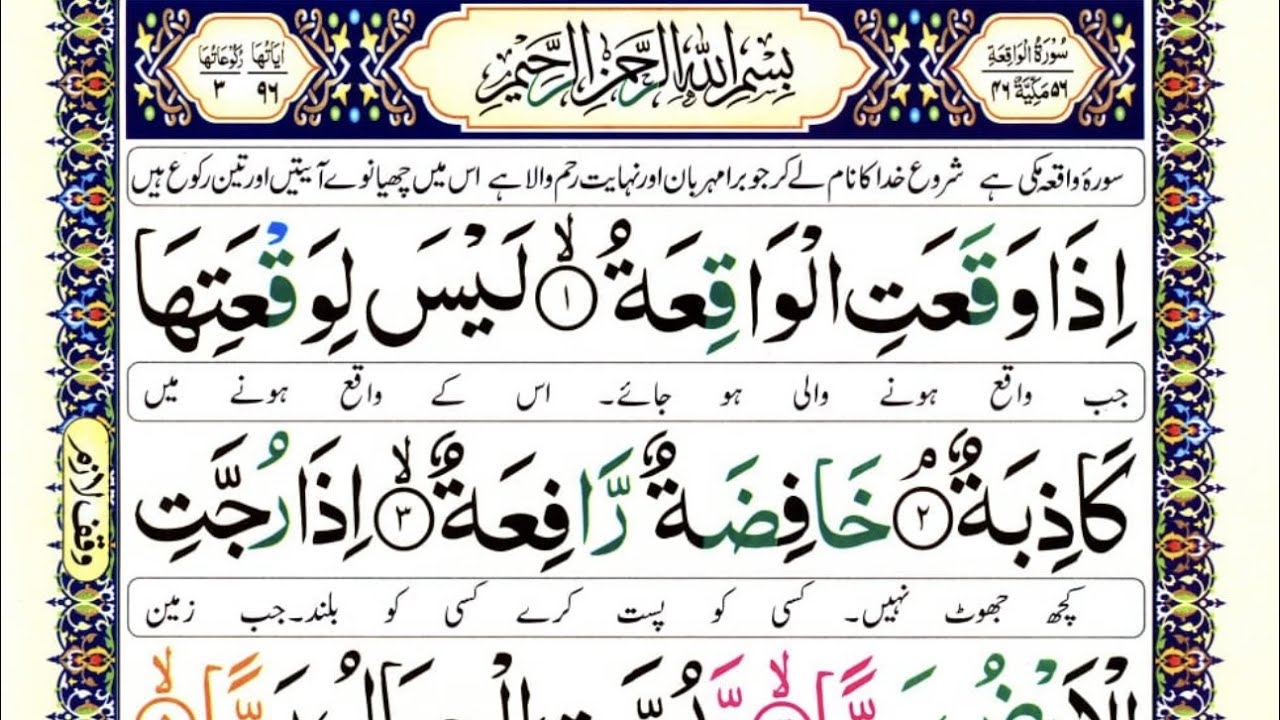 سُوْرَةُ الْوَاقِعَةِ
٥٦ مَكِّيَّةٌ ٤٦
بِسْمِ اللّٰهِ الرَّحْمٰنِ الرَّحِيْمِ
اٰيَاتُهَا ٩٦
رُكُوْعَاتُهَا ٣
سورۂ واقعہ مکی ہے شروع خدا کا نام لے کر جو بڑا مہربان اور نہایت رحم والا ہے اس میں چھیانوے آیتیں اور تین رکوع ہیں
اِذَا وَقَعَتِ الْوَاقِعَةُ ۙ﴿١﴾ لَيْسَ لِوَقْعَتِهَا
جب واقع ہونے والی ہو جائے۔ اس کے واقع ہونے میں
كَاذِبَةٌ ۘ﴿٢﴾ خَافِضَةٌ رَّافِعَةٌ ۙ﴿٣﴾ اِذَا رُجَّتِ
وقف لازم
کچھ جھوٹ نہیں۔ کسی کو پست کرے کسی کو بلند۔ جب زمین
الْاَرْضُ رَجًّا ۙ وَّ بُسَّتِ الْجِبَالُ بَسًّا ۙ